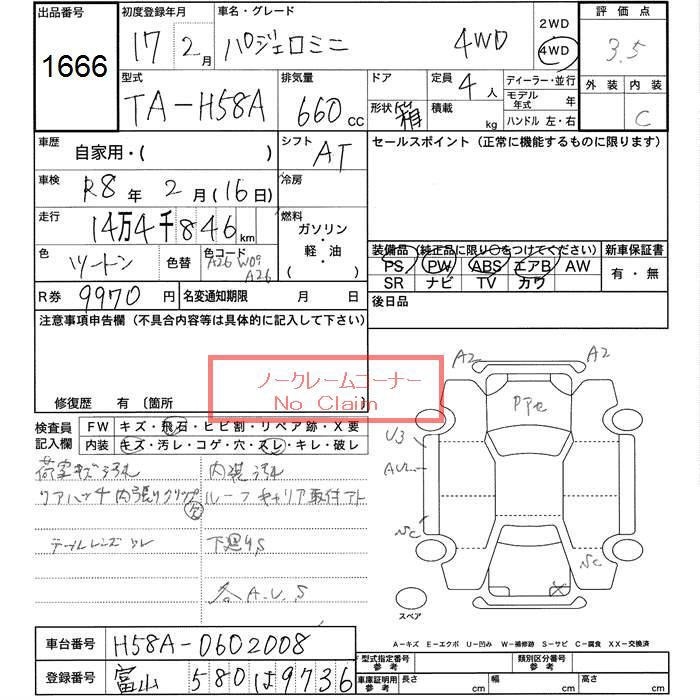 出品番号 初度登録年月 車名・グレード 2WD 評価点
1666 17 2月 パジェロミニ 4WD 4WD 3.5
型式 排気量 ドア 定員 4人 ディーラー・並行 外装 内装
TA-H58A 660cc 形状 箱 積載 kg モデル年式 年 C
ハンドル 左・右
車歴 自家用・( ) シフト AT セールスポイント (正常に機能するものに限ります)
車検 R8年 2月(16日) 冷房
走行 14万4千846km 燃料 ガソリン・軽油・( )
色 ツートン 色替 色コード A26 W09 A26
装備品 (純正品に限り○をつけてください) 新車保証書
PS PW ABS エアB AW 有・無
SR ナビ TV カワ
R券 9970円 名変通知期限 月 日 後日品
注意事項申告欄 (不具合内容等は具体的に記入して下さい)
ノークレームコーナー
No Claim
修復歴 有 〔箇所 〕
検査員記入欄 FW キズ・飛石・ヒビ割・リペア跡・X要
内装 キズ・汚レ・コゲ・穴・スレ・キレ・破レ
荷室キズ汚れ 内装汚れ
リアハッチ内張りクリップ欠 ルーフキャリア取付アト
テールレンズ ワレ 下廻りS
各A.U.S
A2 A2
Pアセ
U3
AU
SC
SC
X
スペア
A-キズ E-エクボ U-凹み W-補修跡 S-サビ C-腐食 XX-交換済
車台番号 H58A-0602008 型式指定番号 参考 類別区分番号 参考
登録番号 富山 580 は 9736 車庫証明用 参考 長さ cm 幅 cm 高さ cm